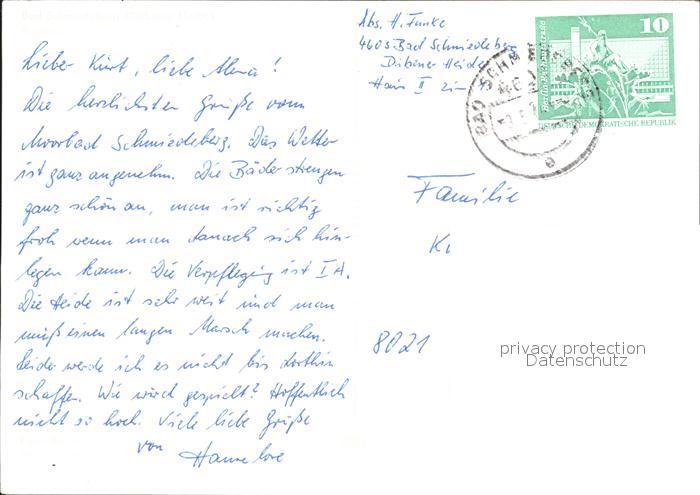 Lieber Kurt, liebe Alma!
Die herzlichsten Grüße vom
Moorbad Schmiedeberg. Das Wetter
ist ganz angenehm. Die Bäder strengen
ganz schön an, man ist richtig
froh wenn man danach sich hin-
legen kann. Die Verpflegung ist I A.
Die Heide ist sehr weit und man
muß einen langen Marsch machen.
Leider werde ich es nicht bis dorthin
schaffen. Wie wird gespielt? Hoffentlich
nicht so hoch. Viele liebe Grüße
von
Hannelore
Abs. H. Funke
4605 Bad Schmiedeberg
Dübener Heide
Haus II
10
DEUTSCHE DEMOKRATISCHE REPUBLIK
BAD SCHMIEDEBERG
e
Familie
K
8021
privacy protection
Datenschutz